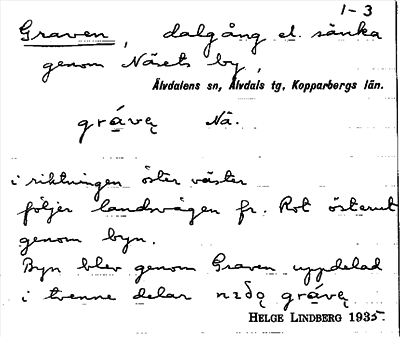 1-3
Graven, dalgång el. sänka
genom Näsets by,
Älvdalens sn, Älvdals tg, Kopparbergs län.
grávę Nä.
i riktningen öster väster
följer landsvägen fr. Rot österut
genom byn.
Byn blev genom Graven uppdelad
i tvenne delar grávę
HELGE LINDBERG 1935.